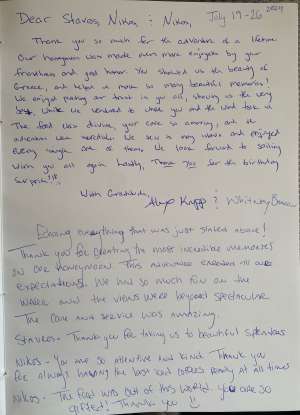 Dear Stavros, Nikos, & Nikos, July 19-26 2024
Thank you so much for the adventure of a lifetime.
Our honeymoon was made even more enjoyable by your
friendliness and good humor. You showed us the beauty of
Greece, and helped us make so many beautiful memories!
We enjoyed putting our trust in you all, showing us the very
best, while we ventured to where you and the wind took us.
The food was divine, your care so amazing, and the
adventure was incredible. We saw so many and enjoyed
every single one of them. We look forward to sailing
with you all again. Lastly, Thank You for the birthday
Surprise!!!
With Gratitude,
& Whitney
Echoing everything that was just stated above!
Thank you for creating the most incredible memories
on our honeymoon. This adventure exceeded all our
expectations. We had so much fun on the
water and the views were beyond spectacular.
The care and service was amazing.
Stavros - Thank you for taking us to beautiful splendors
Nikos - You are so attentive and kind. Thank you
for always having the best iced coffees ready at all times
Nikos - The food was out of this world. You are so
gifted! Thank you